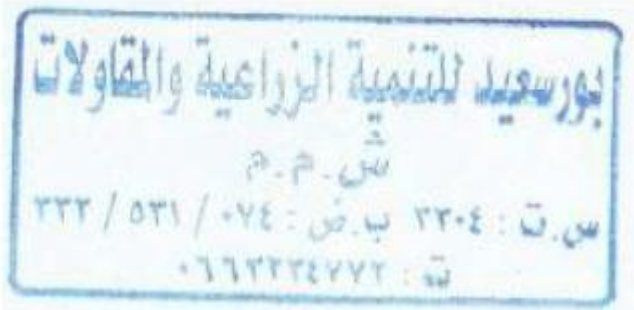 بورسعيد للتنمية الزراعية والمقاولات
ش.م.م
س.ت : ٢٣٠٤ ب.ض : ٠٧٤ / ٥٣١ / ٢٣٣
ت : ٠٦٦٣٢٣٤٧٧٢